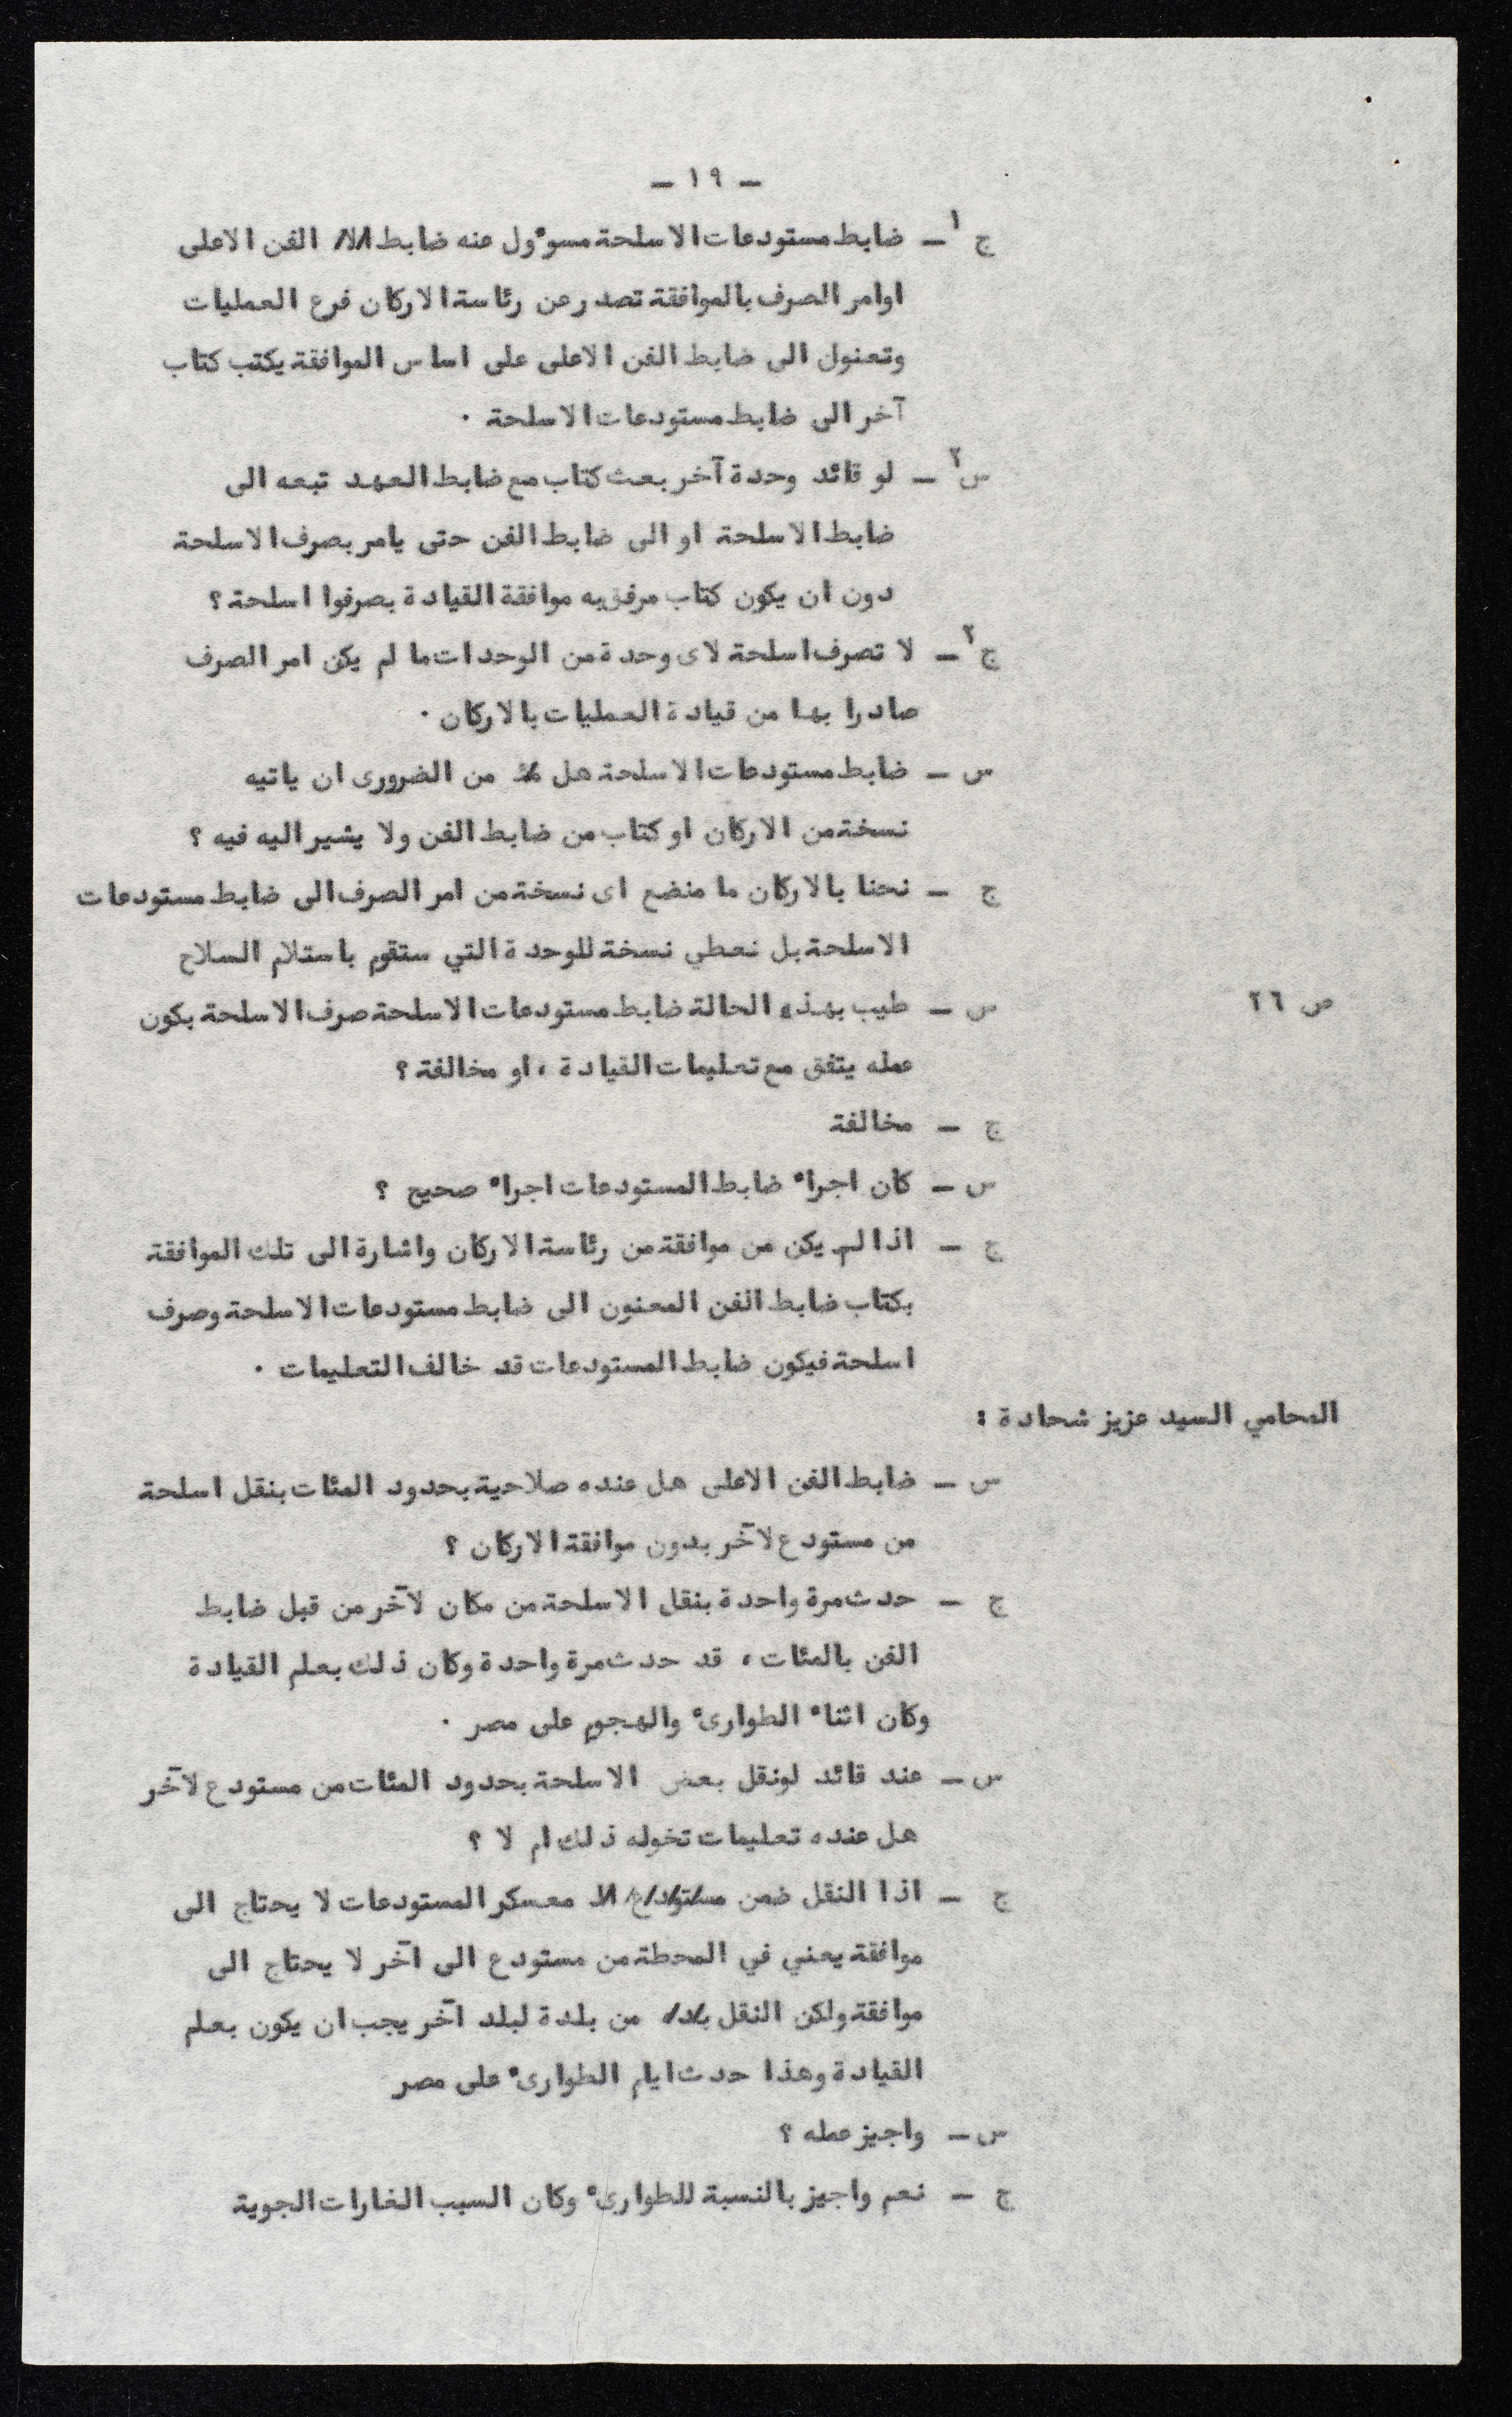 – ١٩ –
ج١ – ضابط مستودعات الاسلحة مسوءول عنه ضابط الفن الاعلى
اوامر الصرف بالموافقة تصدر عن رئاسة الاركان فرع العمليات
وتعنول الى ضابط الفن الاعلى على اساس الموافقة يكتب كتاب
آخر الى ضابط مستودعات الاسلحة .
س٢ – لو قائد وحدة آخر بعث كتاب مع ضابط العهد تبعه الى
ضابط الاسلحة او الى ضابط الفن حتى يامر بصرف الاسلحة
دون ان يكون كتاب مرفق به موافقة القيادة بصرفوا اسلحة ؟
ج٢ – لا تصرف اسلحة لاى وحدة من الوحدات ما لم يكن امر الصرف
صادرا بها من قيادة العمليات بالاركان .
س – ضابط مستودعات الاسلحة هل من الضرورى ان ياتيه
نسخة من الاركان او كتاب من ضابط الفن ولا يشير اليه فيه ؟
ج – نحنا بالاركان ما منضع اى نسخة من امر الصرف الى ضابط مستودعات
الاسلحة بل نعطي نسخة للوحدة التي ستقوم باستلام السلاح
ص ٢٦
س – طيب بهذه الحالة ضابط مستودعات الاسلحة صرف الاسلحة بكون
عمله يتفق مع تعليمات القيادة ، او مخالفة ؟
ج – مخالفة
س – كان اجراء ضابط المستودعات اجراء صحيح ؟
ج – اذا لم يكن من موافقة من رئاسة الاركان واشارة الى تلك الموافقة
بكتاب ضابط الفن المعنون الى ضابط مستودعات الاسلحة وصرف
اسلحة فيكون ضابط المستودعات قد خالف التعليمات .
المحامي السيد عزيز شحادة :
س – ضابط الفن الاعلى هل عنده صلاحية بحدود المئات بنقل اسلحة
من مستودع لآخر بدون موافقة الاركان ؟
ج – حدث مرة واحدة بنقل الاسلحة من مكان لآخر من قبل ضابط
الفن بالمئات ، قد حدث مرة واحدة وكان ذلك بعلم القيادة
وكان اثناء الطوارىء والهجوم على مصر .
س – عند قائد لونقل بعض الاسلحة بحدود المئات من مستودع لآخر
هل عنده تعليمات تخوله ذلك ام لا ؟
ج – اذا النقل ضمن معسكر المستودعات لا يحتاج الى
موافقة يعني في المحطة من مستودع الى آخر لا يحتاج الى
موافقة ولكن النقل من بلدة لبلد آخر يجب ان يكون بعلم
القيادة وهذا حدث ايام الطوارىء على مصر
س – واجيز عمله ؟
ج – نعم واجيز بالنسبة للطوارىء وكان السبب الغارات الجوية